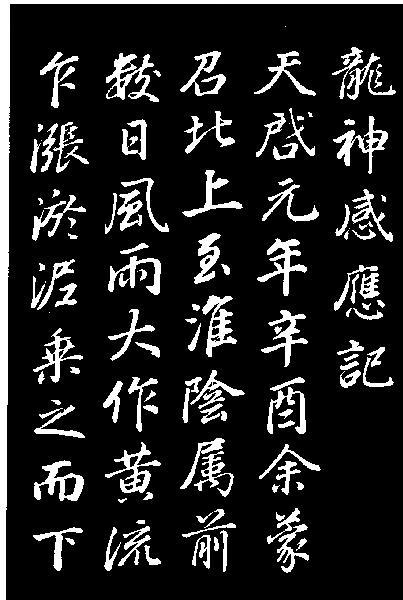 龍神感應記
天啟元年辛酉余蒙
召北上至淮陰属前
數日風雨大作黄流
乍漲淤泥乗之而下